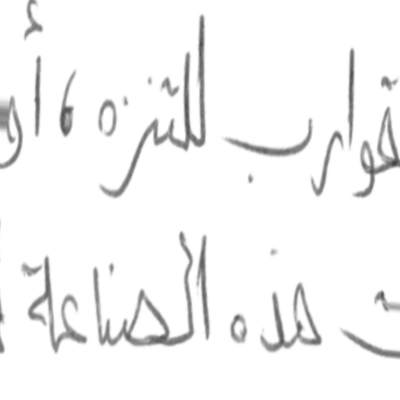 قوارب للتنزه ، أو
هذه الصناعة